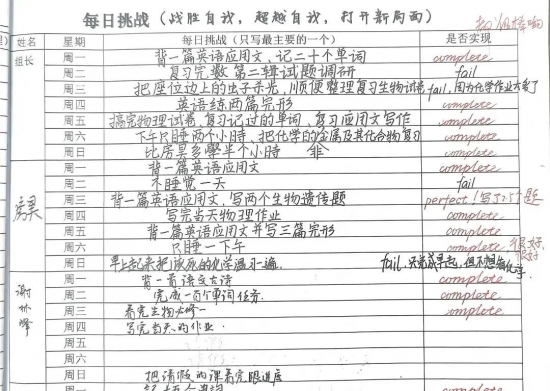 每日挑战（战胜自我，超越自我，打开新局面）
姓名 星期 每日挑战（只写最主要的一个） 是否实现
组长 周一 背一篇英语应用文、记二十个单词 complete
周二 复习完数第二辑试题调研 fail
周三 把座位边上的虫子杀光，顺便整理复习生物试卷 fail，因为化学作业太多了
周四 英语练两篇完形 complete
周五 搞完物理试卷、复习记过的单词、复习应用文写作 complete
周六 下午只睡两个小時，把化学的金属及其化合物复习 complete
周日 比房昊多學半个小時 complete
房昊 周一 背一篇英语应用文 complete
周二 不睡觉一天 fail
周三 背一篇英语应用文、写两个生物遗传题 perfect！写了5个题
周四 写完当天物理作业 complete
周五 背一篇英语应用文并写三篇完形 complete
周六 只睡一下午 complete 很好，很好
周日 早上起来把该死的化学温习一遍 fail，不完成早起，但不想搞化学
周一 背一首语文古诗 complete
周二 完成一百个单词任务. complete
周三 看完生物必修一 complete
周四 写完当天的作业.
周五
周六
周日 把请假的课看完跟进度
周一 complete